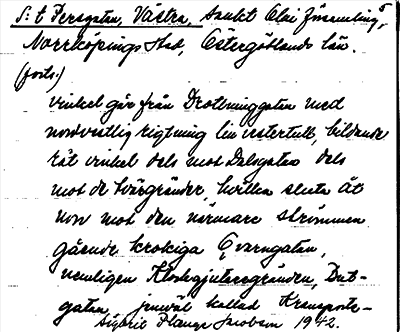 S:t Persgatan, Västra, Sankt Olai församling,
Norrköpings stad, Östergötlands län.
(forts.)
vinkel går från Drottninggatan med
nordvestlig rigtning till vestertull, bildande
rät vinkel dels mot Dalsgatan dels
mot de tvärgränder, hvilka sluta åt
norr mot den närmare strömmen
gående krokiga Qvarngatan,
nemligen Klockgjutaregränden, Dub-
gatan, jemväl kallad Kransgatan
Sigrid Plange Jacobson 1942.